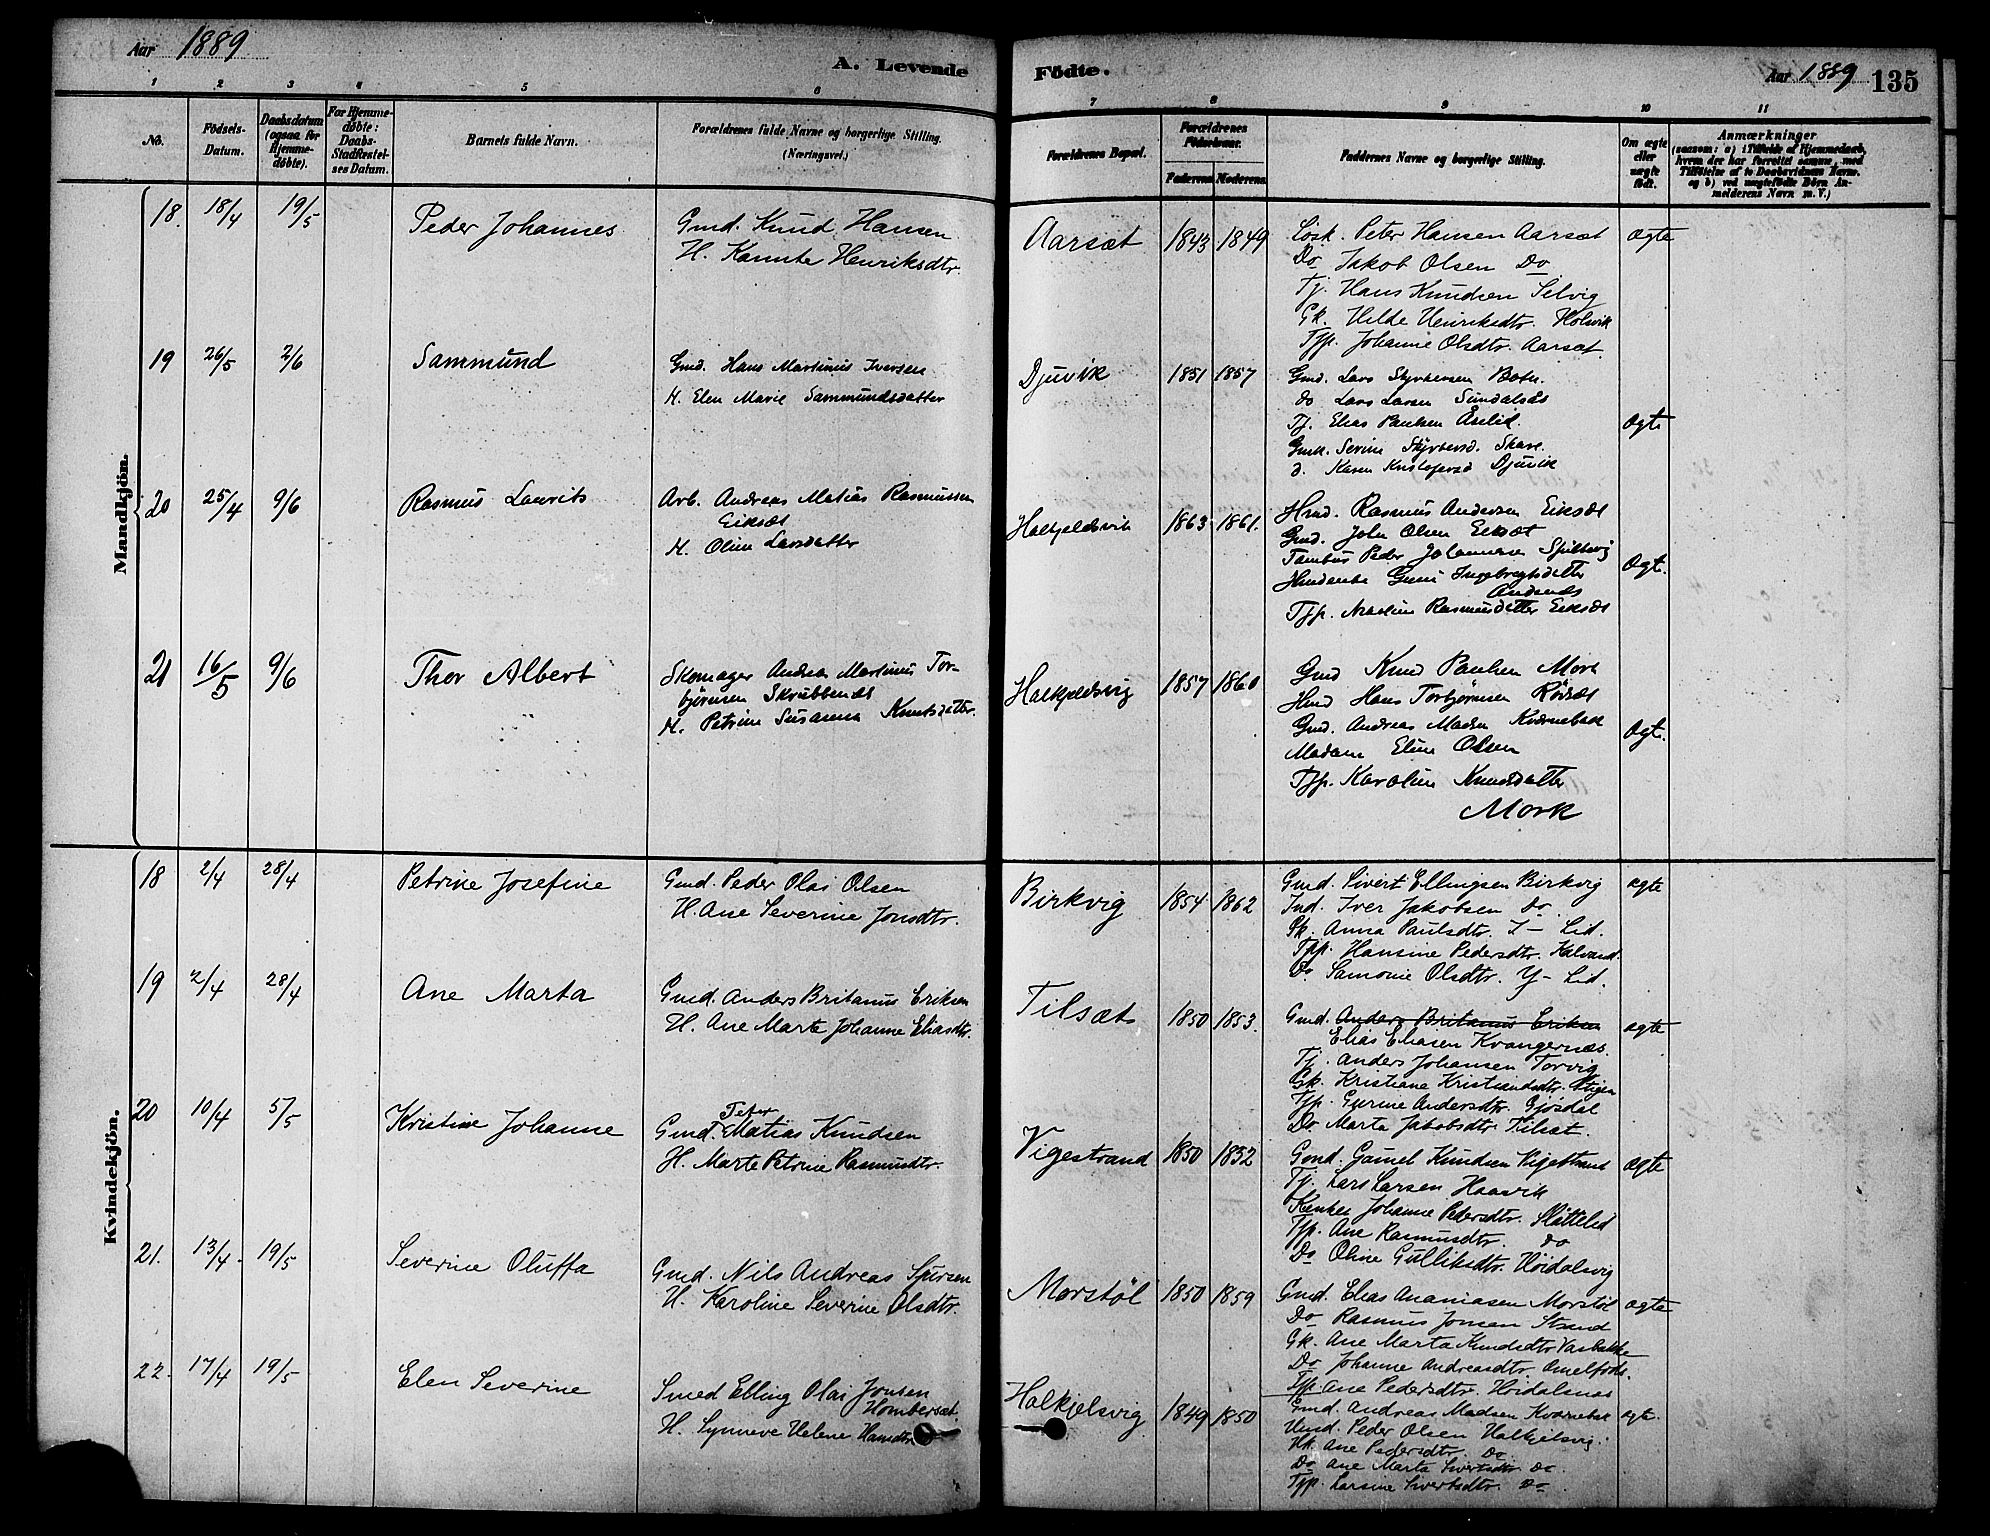 Aar 1889
A. Levende
Födte.
Aar 1889 135
1 2 3 4 5 6
7 8 9 10 11
No.
Födsels-
Datum.
Daabsdatum
(ogsaa for
Hjemme-
døbte).
For Hjemme-
døbte:
Daabs-
Stadfæstel-
ses Datum.
Barnets fulde Navn.
Forældrenes fulde Navne og borgerlige Stilling.
(Næringsvei.)
Forældrenes Bopæl.
Forældrenes
Födselsaar.
Faderens Moderens
Faddernes Navne og borgerlige Stilling.
Om ægte
eller
uægte
født.
Anmærkninger
(saasom: a) i Tilfælde af Hjemmedaab,
hvem der har forrettet samme, med
Tilföielse af to Daabsvidners Navne,
og b) ved uægtefödte Börn An-
melderens Navn m. V.)
Mandkjön.
18. 18/4 19/5 Peder Johannes
Gmd. Knud Hansen
H. Kamte Henriksdtr.
Aarsæt 1843 1849
Losk. Peter Hansen Aarsæt
Do Jakob Olsen Do
Tj. Hans Knudsen Selvig
Gk. Hilde Henriksdtr. Holvik
Tjp. Johanne Olsdtr. Aarsæt.
ægte
19 26/5 2/6 Sammund
Gmd. Hans Martinus Iversen
H. Elen Marie Sammundsdatter
Djuvik 1851 1857
Gmd. Lars Styrkersen Botn.
do Lars Larsen Sundalsås
Tj. Elias Paulsen Åselid.
Gmk. Serine Styrkersd. Skare.
d. Karen Kristofersd Djuvik
Ægte
20 25/4 9/6 Rasmus Laurits
Arb. Andreas Matias Rasmussen
Eiksæt
H. Oline Larsdatter
Halkjeldsvik 1863 1861.
Hmd. Rasmus Andersen Eiksæt
Gmd. John Olsen Eiksæt
Peder Johannesen
Ingebrigtsdatter
Tjp. Rasmusdatter Eiksæt
Ægt.
21 16/5 9/6 Thor Albert
Skomager Andreas Martinus Tor-
bjørnsen Skrubbenæs
H. Petrine Susanna Knutsdatter.
Halkjeldsvig 1857 1860
Gmd Knud Paulsen Mork
Hmd Hans Torbjørnsen Rødsæt
Gmd. Andreas Madsen Kvernebak
Madam Eline Olsen
Tjp. Karoline Knudsdatter
Mork
Ægt.
Kvindekjön.
18 2/4 28/4 Petrine Josefine
Gmd. Peder Olai Olsen
H. Ane Severine Jonsdtr.
Birkvig 1854 1862
Gmd. Sivert Ellingsen Birkvig
Ind. Iver Jakobsen Do
Gk. Anna Paulsdtr. I- Lid.
Tjp. Hansine Pedersdtr. Kalvand.
Do Samonie Olsdtr. Y- Lid.
ægte
19 2/4 28/4 Ane Marta
Gmd. Anders Britanus Eriksen
H. Ane Marte Johanne Eliasdtr.
Tilsæt 1850 1853.
Gmd. Anders Britanus Eriksen
Elias Eliasen Kvangernæs.
Tj. Anders Johansen Torvig
Gk. Kristiane Kristiansdtr. Stigen
Tjp. Gurine Andersdtr. Gjøsdal
Do Marta Jakobsdtr. Tilsæt.
ægte
20 10/4 5/5 Kristine Johanne
Peter
Gmd. Matias Knudsen
H. Marte Petrine Rasmusdtr.
Vigestrand 1850 1852
Gmd. Gamel Knudsen Vigestrand
Tj. Lars Larsen Haavik
Enke Johanne Pedersdtr. Slåttelid
Tjp. Ane Rasmusdtr. do
Do Oline Gulliksdtr. Høidalsvig
ægte
21. 13/4 19/5 Severine Oluffa
Gmd. Nils Andreas Sjursen
H. Karoline Severine Olsdtr.
Morstøl 1850 1859
Gmd. Elias Ananiasen Morstøl
Do Rasmus Jonsen Strand
Gk. Ane Marta Knudsdtr Vasbakke
Do Johanne Andreasdtr. Omelfodt.
Tjp. Ane Pedersdtr. Høidalsnæs
ægte
22. 17/4 19/5 Elen Severine
Smed Elling Olai Jonsen
Hombersæt.
H. Synneve Helene Hansdtr.
Halkjelsvig 1849 1850
Gmd. Andreas Madsen Kvernebak
Hmd. Peder Olsen Halkjelsvig.
Hk. Ane Pedersdtr. Do
Do Ane Marta Sivertsdtr. Do.
Tjp. Larsine Sivertsdtr. Do
ægte.